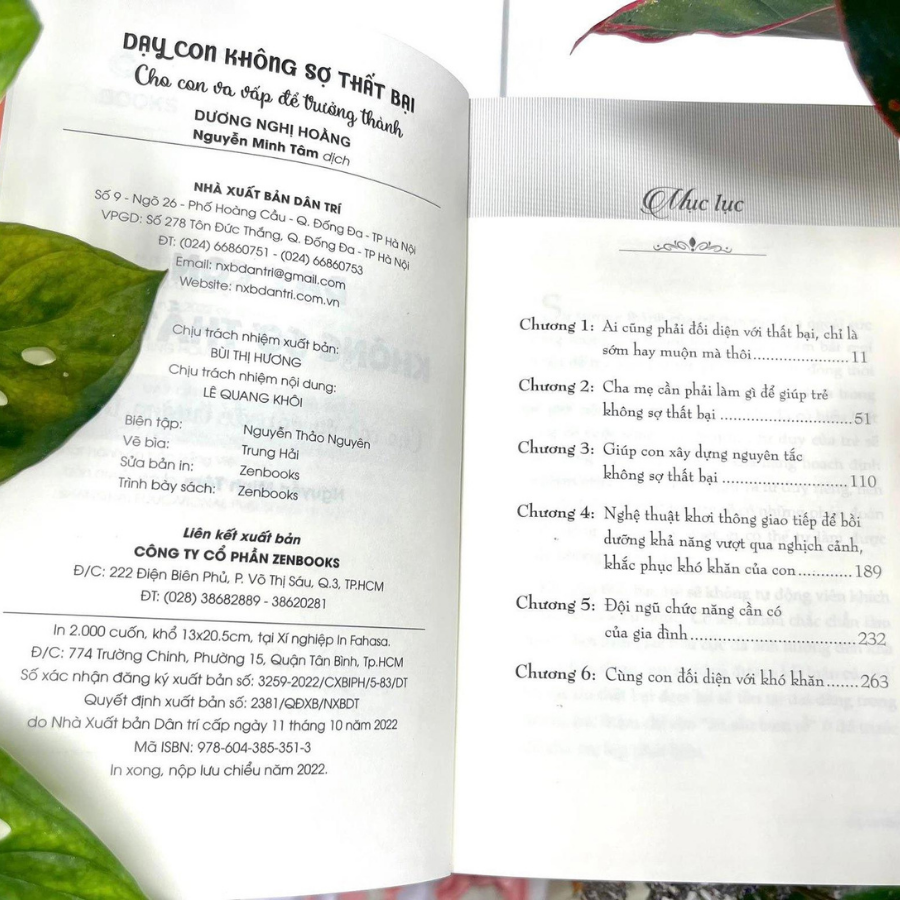 DẠY CON KHÔNG SỢ THẤT BẠI
Cho con va vấp để trưởng thành
DƯƠNG NGHỊ HOẰNG
Nguyễn Minh Tâm dịch
NHÀ XUẤT BẢN DÂN TRÍ
Số 9 - Ngõ 26 - Phố Hoàng Cầu - Q. Đống Đa - TP Hà Nội
VPGD: Số 278 Tôn Đức Thắng, Q. Đống Đa - TP Hà Nội
ĐT: (024) 66860751 - (024) 66860753
Email: nxbdantri@gmail.com
Website: nxbdantri.com.vn
Chịu trách nhiệm xuất bản:
BÙI THỊ HƯƠNG
Chịu trách nhiệm nội dung:
LÊ QUANG KHÔI
Biên tập: Nguyễn Thảo Nguyên
Vẽ bìa: Trung Hải
Sửa bản in: Zenbooks
Trình bày sách: Zenbooks
Liên kết xuất bản
CÔNG TY CỔ PHẦN ZENBOOKS
Đ/C: 222 Điện Biên Phủ, P. Võ Thị Sáu, Q.3, TP.HCM
ĐT: (028) 38682889 - 38620281
In 2.000 cuốn, khổ 13x20.5cm, tại Xí nghiệp In Fahasa.
Đ/C: 774 Trường Chinh, Phường 15, Quận Tân Bình, Tp.HCM
Số xác nhận đăng ký xuất bản số: 3259-2022/CXBIPH/5-83/DT
Quyết định xuất bản số: 2381/QĐXB/NXBDT
do Nhà Xuất bản Dân trí cấp ngày 11 tháng 10 năm 2022
Mã ISBN: 978-604-385-351-3
In xong, nộp lưu chiểu năm 2022.
Mục lục
Chương 1: Ai cũng phải đối diện với thất bại, chỉ là
sớm hay muộn mà thôi....................11
Chương 2: Cha mẹ cần phải làm gì để giúp trẻ
không sợ thất bại....................51
Chương 3: Giúp con xây dựng nguyên tắc
không sợ thất bại....................110
Chương 4: Nghệ thuật khơi thông giao tiếp để bồi
dưỡng khả năng vượt qua nghịch cảnh,
khắc phục khó khăn của con............189
Chương 5: Đội ngũ chức năng cần có
của gia đình..............................232
Chương 6: Cùng con đối diện với khó khăn.......263